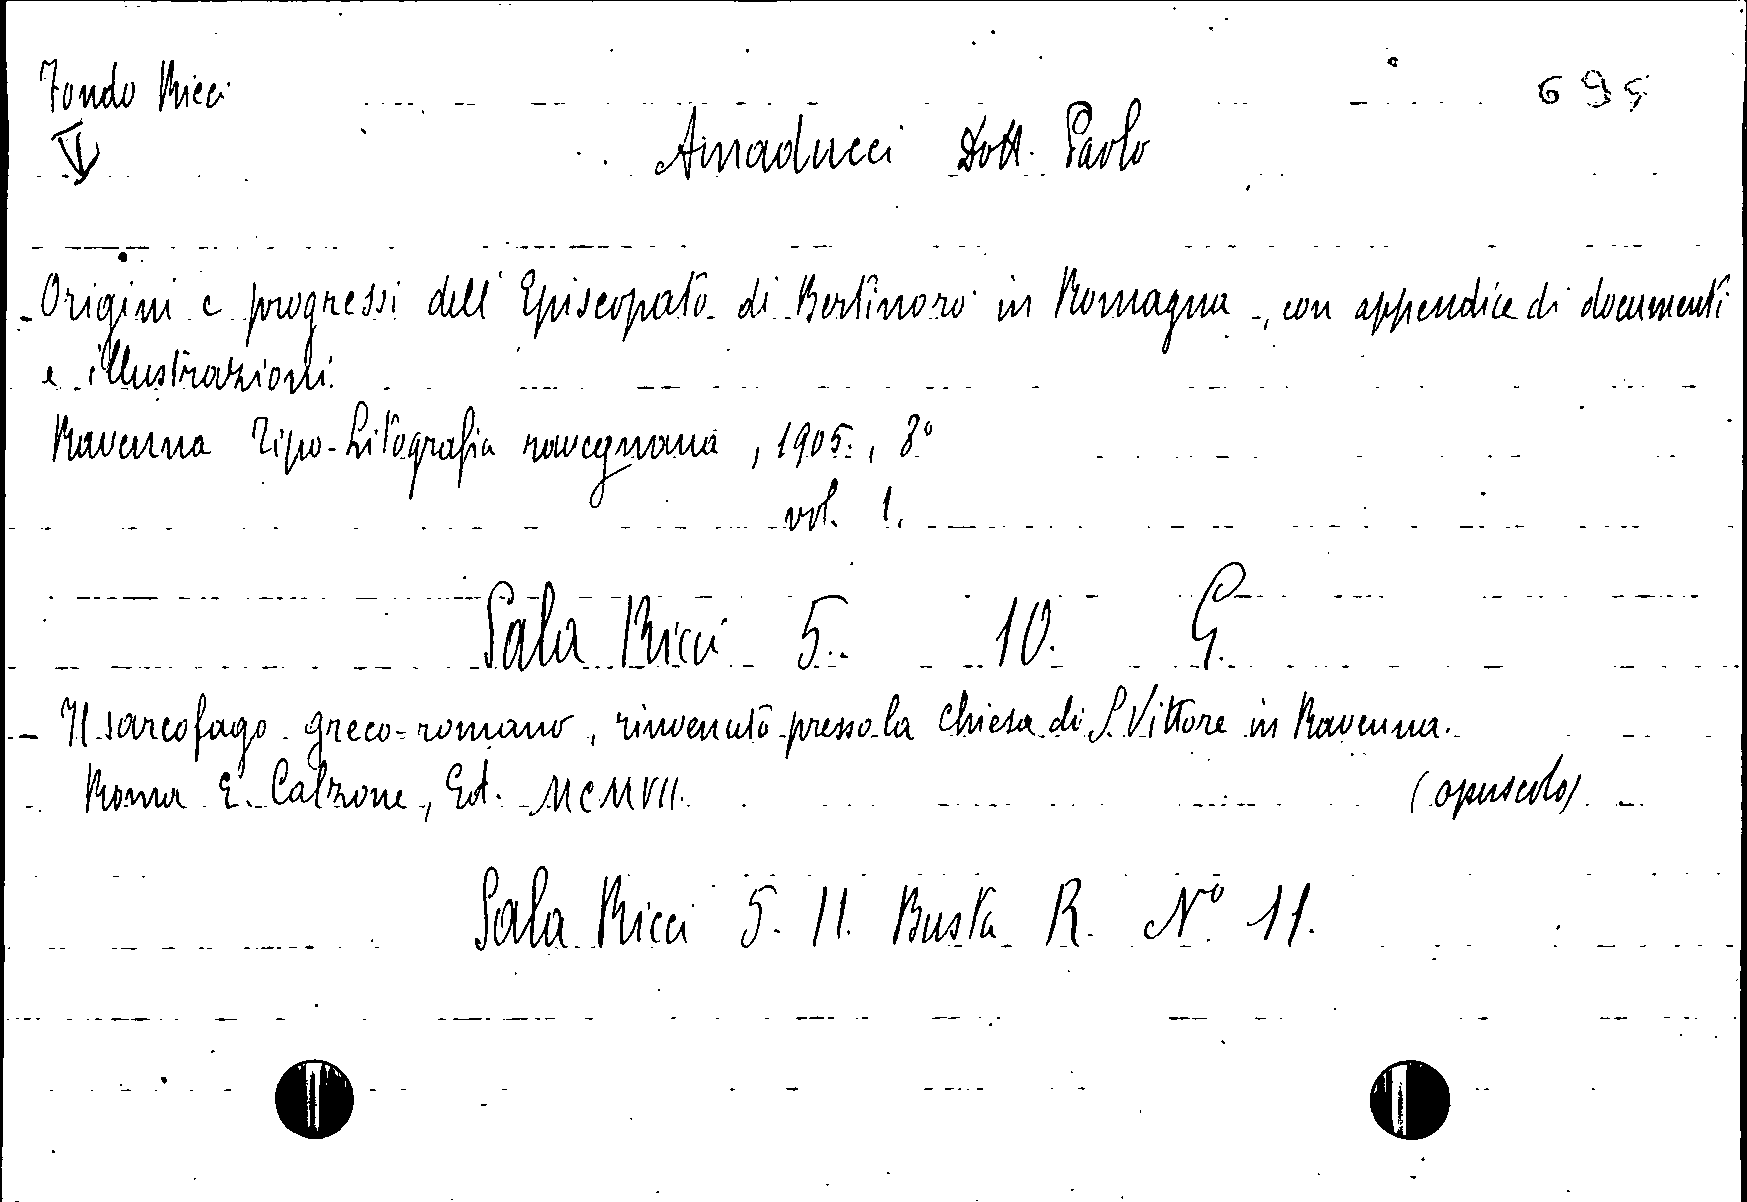 Fondo Ricci
695
V
Amaducci Dott. Paolo
- Origini e progressi dell'Episcopato di Bertinoro in Romagna, con appendice di documenti
e illustrazioni.
Ravenna Tipo-Litografia ravegnana, 1905, 8°
vol. 1.
Sala Ricci 5. 10. G.
- Il sarcofago greco-romano, rinvenuto presso la chiesa di S. Vittore in Ravenna.
Roma E. Calzone, Ed. MCMVII. (opuscolo)
Sala Ricci 5. 11. Busta R. N° 11.